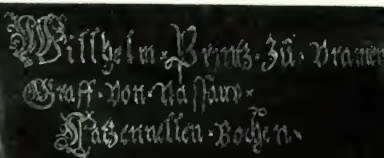 Willhelm · Printz · zů · Uranien
Graff · von · Nassaw ·
Katzennellen · Bochen ·